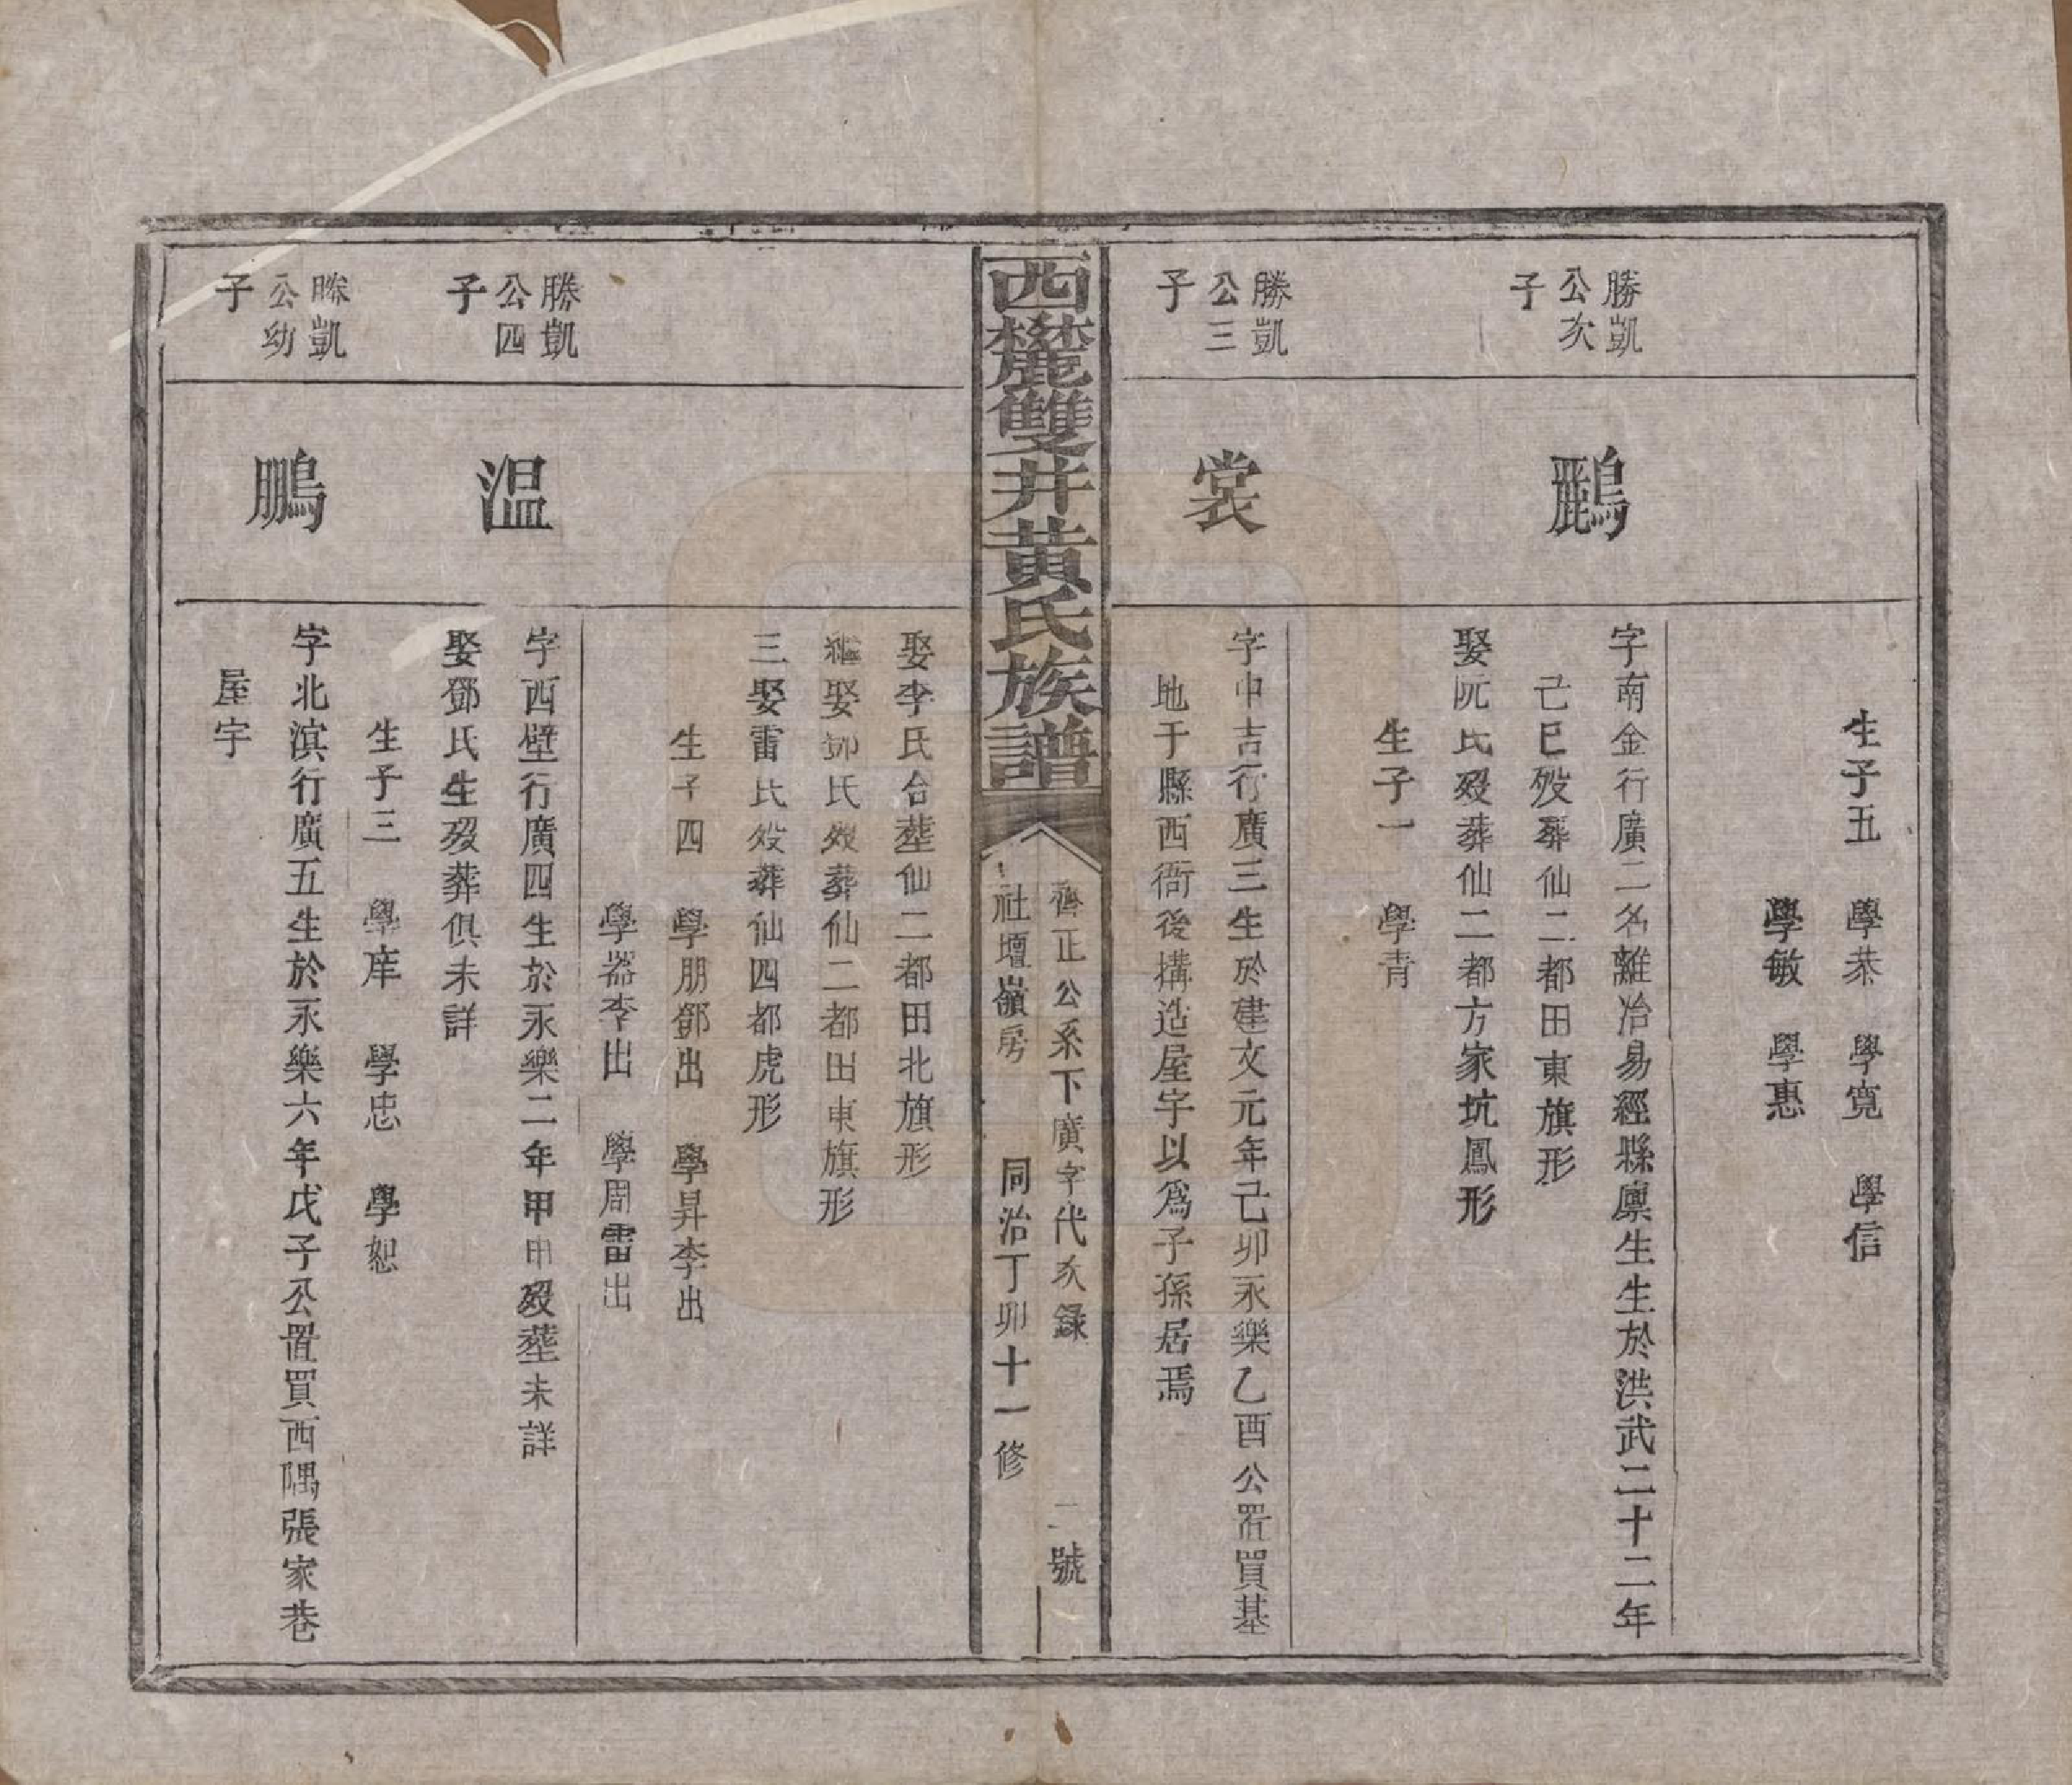 生子五　學恭　學寬　學信
學敏　學惠
勝凱
公次
子
鸝
字南金行廣二名離冶易經縣廩生生於洪武二十二年
己巳歿葬仙二都田東旗形
娶阮氏歿葬仙二都方家坑鳳形
生子一　學青
勝凱
公三
子
裳
字中吉行廣三生於建文元年己卯永樂乙酉公置買基
地于縣西衙後搆造屋宇以爲子孫居焉
西麓雙井黃氏族譜
齊正公系下廣字代次錄　二號
社壇嶺房　同治丁卯十一修
娶李氏合葬仙二都田北旗形
繼娶鄧氏歿葬仙二都田東旗形
三娶雷氏歿葬仙四都虎形
生子四　學朋鄧出　學昇李出
學器李出　學周雷出
勝凱
公四
子
温
字西壁行廣四生於永樂二年甲申歿葬未詳
娶鄧氏生歿葬俱未詳
生子三　學庠　學忠　學恕
勝凱
公幼
子
鵬
字北濱行廣五生於永樂六年戊子公置買西隅張家巷
屋宇